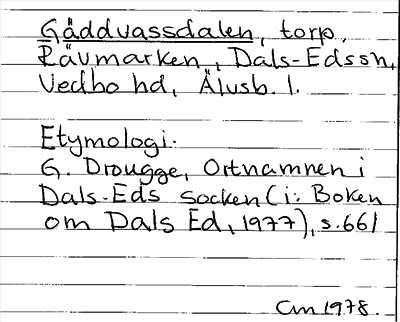 Gäddvassdalen, torp,
Rävmarken, Dals-Eds sn,
Vedbo hd, Älvsb. l.
Etymologi.
G. Drougge, Ortnamnen i
Dals-Eds socken (i: Boken
om Dals Ed, 1977), s. 661
Cm 1978.